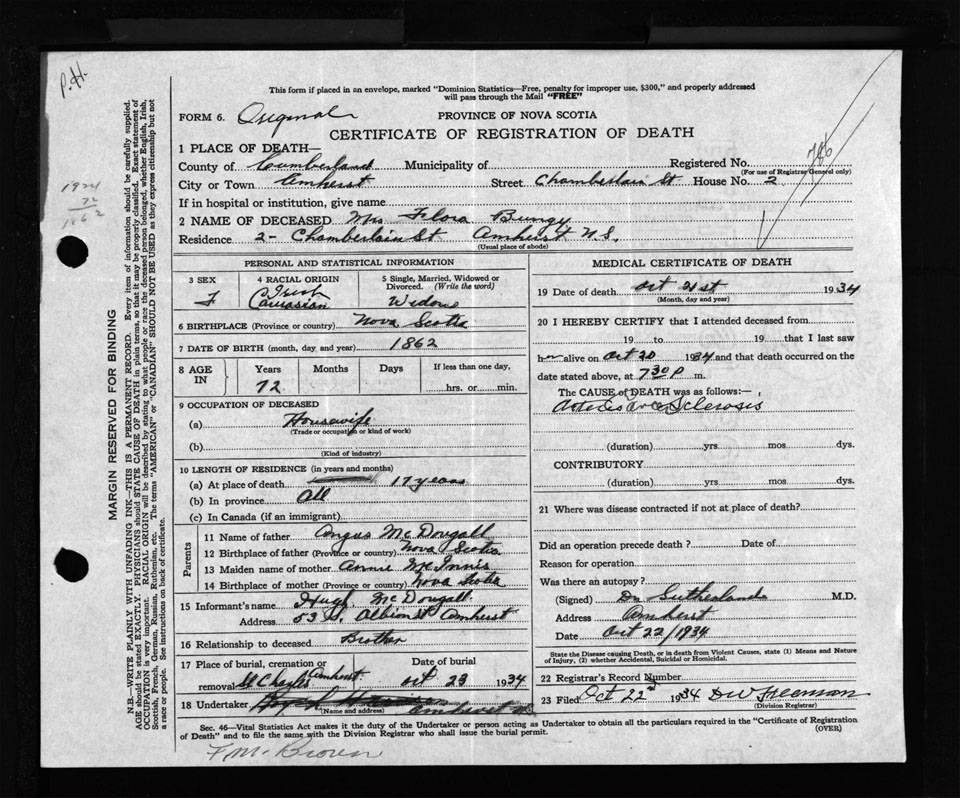 P.H.
This form if placed in an envelope, marked "Dominion Statistics—Free, penalty for improper use, $300," and properly addressed
will pass through the Mail "FREE"
FORM 6. Original PROVINCE OF NOVA SCOTIA
CERTIFICATE OF REGISTRATION OF DEATH
1 PLACE OF DEATH—
County of Cumberland Municipality of Registered No. 746
(For use of Registrar General only)
City or Town Amherst Street Chamberlain St House No. 2
If in hospital or institution, give name
2 NAME OF DECEASED Mrs Flora Bungy
Residence 2- Chamberlain St Amherst N.S.
(Usual place of abode)
1934
72
1862
MARGIN RESERVED FOR BINDING
N.B.—WRITE PLAINLY WITH UNFADING INK—THIS IS A PERMANENT RECORD. Every item of information should be carefully supplied.
AGE should be stated EXACTLY. PHYSICIANS should STATE CAUSE OF DEATH in plain terms, so that it may be properly classified. Exact statement of
OCCUPATION is very important. RACIAL ORIGIN will be described by stating to what people or race the deceased person belonged, whether English, Irish,
Scottish, French, German, Russian, Ruthenian, etc. The terms "AMERICAN" or "CANADIAN" SHOULD NOT BE USED as they express citizenship but not
a race or people. See instructions on back of certificate.
PERSONAL AND STATISTICAL INFORMATION
3 SEX
F
4 RACIAL ORIGIN
Irish
Caucasian
5 Single, Married, Widowed or
Divorced. (Write the word)
Widow
6 BIRTHPLACE (Province or country) Nova Scotia
7 DATE OF BIRTH (month, day and year) 1862
8 AGE
IN
Years Months Days If less than one day,
72 hrs. or min.
9 OCCUPATION OF DECEASED
(a) Housewife
(Trade or occupation or kind of work)
(b)
(Kind of industry)
10 LENGTH OF RESIDENCE (in years and months)
(a) At place of death 17 years
(b) In province All
(c) In Canada (if an immigrant)
Parents
11 Name of father Angus McDougall
12 Birthplace of father (Province or country) Nova Scotia
13 Maiden name of mother Annie McInnis
14 Birthplace of mother (Province or country) Nova Scotia
15 Informant's name Hugh McDougall
Address 53 Albion St Amherst
16 Relationship to deceased Brother
17 Place of burial, cremation or Date of burial
removal Amherst Oct 23 1934
18 Undertaker Amherst
(Name and address)
MEDICAL CERTIFICATE OF DEATH
19 Date of death Oct 21st 1934
(Month, day and year)
20 I HEREBY CERTIFY that I attended deceased from
19 to 19 that I last saw
her alive on Oct 20 1934 and that death occurred on
date stated above, at 7 30 P m.
The CAUSE of DEATH was as follows:—
Sclerosis
(duration) yrs. mos. dys.
CONTRIBUTORY
(duration) yrs. mos. dys.
21 Where was disease contracted if not at place of death?
Did an operation precede death? Date of
Reason for operation
Was there an autopsy?
(Signed) Dr Sutherland M.D.
Address Amherst
Date Oct 22/1934
State the Disease causing Death, or in death from Violent Causes, state (1) Means and Nature
of Injury, (2) whether Accidental, Suicidal or Homicidal.
22 Registrar's Record Number
23 Filed Oct 22nd 1934 DW Freeman
(Division Registrar)
Sec. 46—Vital Statistics Act makes it the duty of the Undertaker or person acting as Undertaker to obtain all the particulars required in the "Certificate of Registration
of Death" and to file the same with the Division Registrar who shall issue the burial permit. (OVER)
F. M. Brown